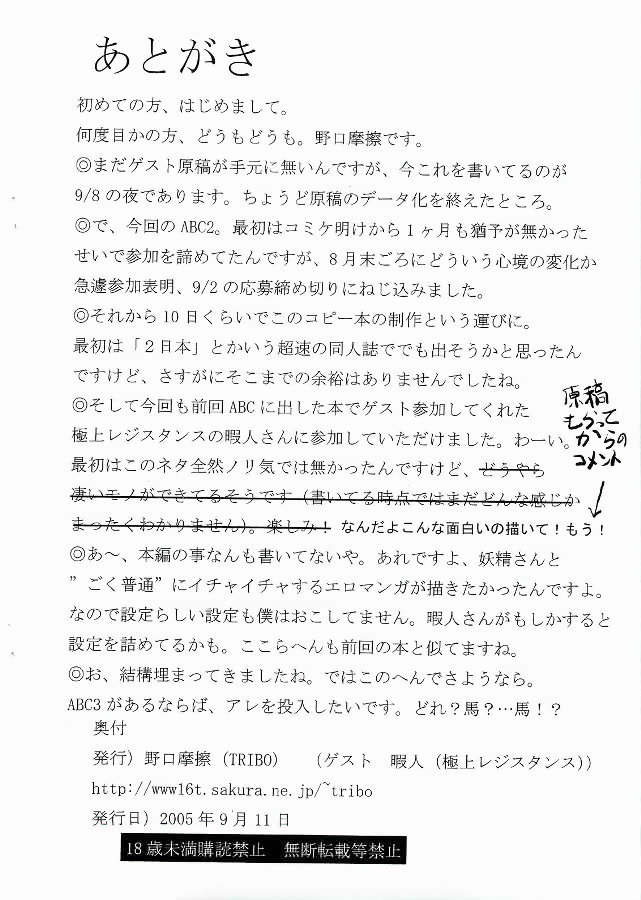 あとがき
初めての方、はじめまして。
何度目かの方、どうもどうも。野口摩擦です。
◎まだゲスト原稿が手元に無いんですが、今これを書いてるのが
9/8の夜であります。ちょうど原稿のデータ化を終えたところ。
◎で、今回のABC2。最初はコミケ明けから１ヶ月も猶予が無かった
せいで参加を諦めてたんですが、８月末ごろにどういう心境の変化か
急遽参加表明、9/2の応募締め切りにねじ込みました。
◎それから10日くらいでこのコピー本の制作という運びに。
最初は「２日本」とかいう超速の同人誌ででも出そうかと思ったん
ですけど、さすがにそこまでの余裕はありませんでしたね。
◎そして今回も前回ABCに出した本でゲスト参加してくれた
極上レジスタンスの暇人さんに参加していただけました。わーい。
最初はこのネタ全然ノリ気では無かったんですけど、どうやら
凄いモノができてるそうです（書いてる時点ではまだどんな感じか
まったくわかりません）。楽しみ！ なんだよこんな面白いの描いて！もう！
原稿
もらって
からの
コメント
◎あ～、本編の事なんも書いてないや。あれですよ、妖精さんと
”ごく普通”にイチャイチャするエロマンガが描きたかったんですよ。
なので設定らしい設定も僕はおこしてません。暇人さんがもしかすると
設定を詰めてるかも。ここらへんも前回の本と似てますね。
◎お、結構埋まってきましたね。ではこのへんでさようなら。
ABC3があるならば、アレを投入したいです。どれ？馬？…馬！？
奥付
発行）野口摩擦（TRIBO）　（ゲスト　暇人（極上レジスタンス））
http://www16t.sakura.ne.jp/~tribo
発行日）2005年９月11日
18歳未満購読禁止　無断転載等禁止